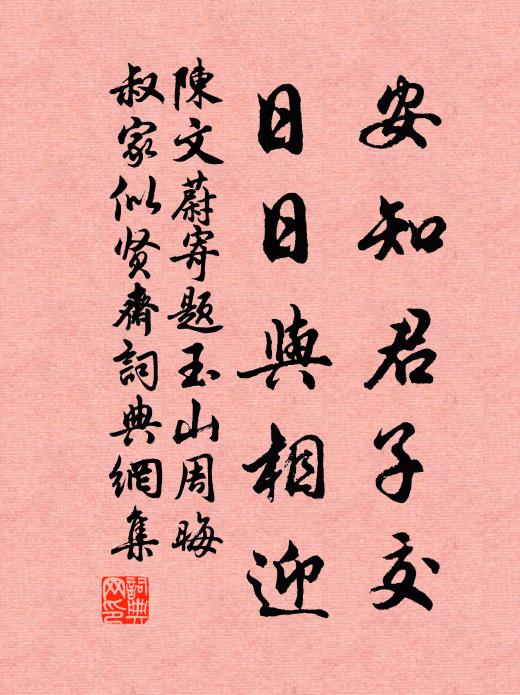 安知君子交
日日與相迎
陳文蔚寄題玉山周晦
叔家似贤齋詞典網集
詞典网印